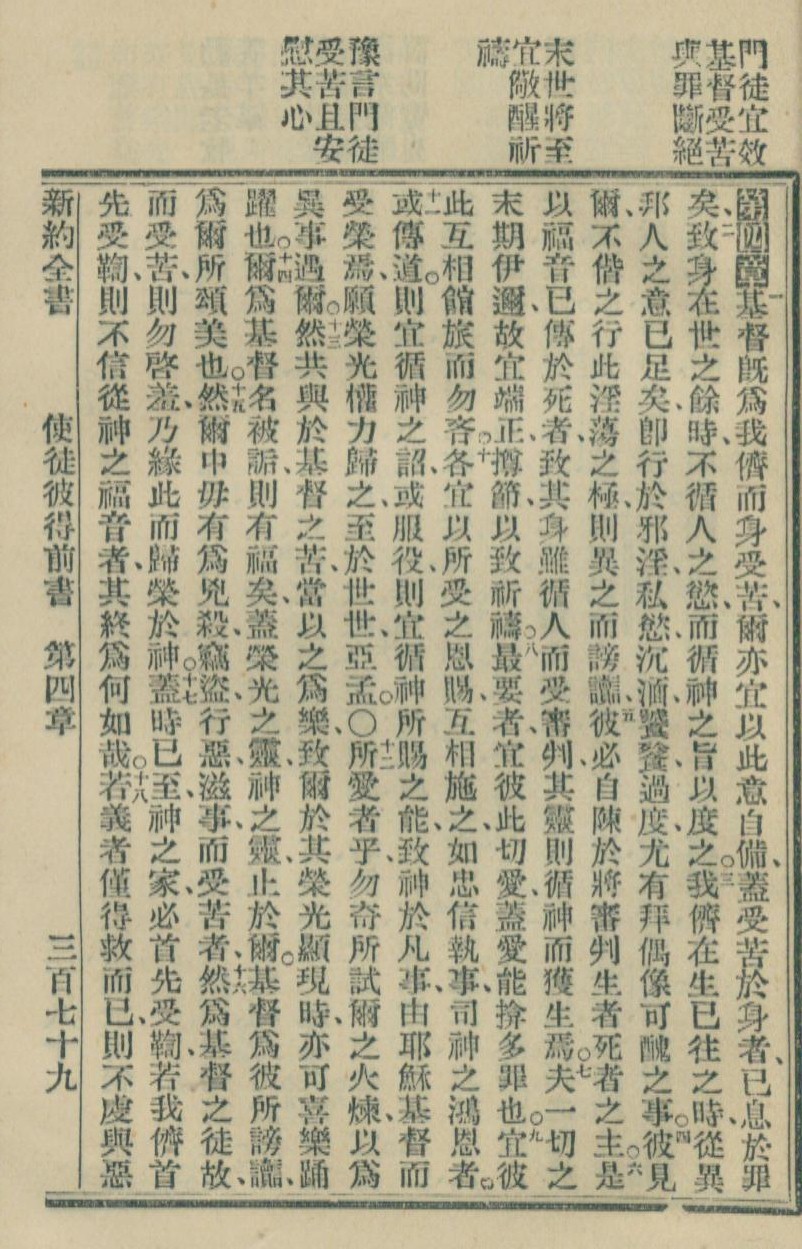 門徒宜效
基督受苦
與罪斷絕
末世將至
宜儆醒祈
禱
豫言門徒
受苦且安
慰其心
第四章一基督旣爲我儕而身受苦、爾亦宜以此意自備、蓋受苦於身者、已息於罪
矣、二致身在世之餘時、不循人之慾、而循神之旨以度之、○三我儕在生已往之時、從異
邦人之意已足矣、卽行於邪淫、私慾、沉湎、饕餮過度、尤有拜偶像可醜之事、○四彼見
爾不偕之行此淫蕩之極、則異之而謗讟、五彼必自陳於將審判生者死者之主、○六是
以福音已傳於死者、致其身雖循人而受審判、其靈則循神而獲生焉、○七夫一切之
末期伊邇、故宜端正、撙節、以致祈禱、○八最要者、宜彼此切愛、蓋愛能揜多罪也、○九宜彼
此互相館旅而勿吝、○十各宜以所受之恩賜、互相施之、如忠信執事、司神之鴻恩者。
十一或傳道、則宜循神之詔、或服役、則宜循神所賜之能、致神於凡事、由耶穌基督而
受榮焉、願榮光權力歸之、至於世世、亞孟。○十二所愛者乎、勿奇所試爾之火煉、以爲
異事遇爾、○十三然共與於基督之苦、當以之爲樂、致爾於其榮光顯現時、亦可喜樂踊
躍也、○十四爾爲基督名被詬、則有福矣、蓋榮光之靈、神之靈、止於爾。基督爲彼所謗讟、
爲爾所頌美也、○十五然爾中毋有爲兇殺、竊盜、行惡、滋事、而受苦者、十六然爲基督之徒故、
而受苦、則勿啓羞、乃緣此而歸榮於神、○十七蓋時已至、神之家、必首先受鞫、若我儕首
先受鞫、則不信從神之福音者、其終爲何如哉、○十八若義者僅得救而已、則不虔與惡
新約全書　使徒彼得前書　第四章　三百七十九